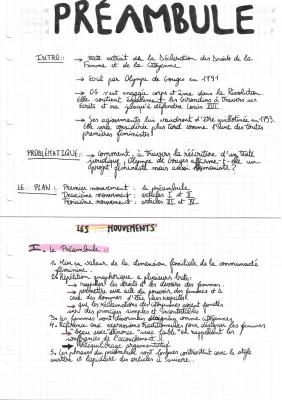 PRÉAMBULE
INTRO : → texte extrait de la Déclaration des Droits de la
Femme et de la Citoyenne
→ écrit par Olympe de Gouges en 1791
→ OG s'est engagée corps et âme dans la Révolution
Elle soutient également les Girondins à travers ses
écrits et ira jusqu'à défendre Louis XVI.
→ Ses agissements lui vaudront d'être guillotinée en 1793.
Elle sera considérée plus tard comme l'une des toutes
premières féministes !
PROBLÉMATIQUE : → Comment, à travers la réécriture d'un texte
juridique, Olympe de Gouges affirme-t-elle un
projet féministe mais aussi humaniste ?
LE PLAN : Premier mouvement : le préambule
Deuxième mouvement : articles I et II
Troisième mouvement : articles III et IV
LES MOUVEMENTS
I. Le Préambule :
1. Mise en valeur de la dimension familiale de la communauté
féminine.
2. Répétition anaphorique a plusieurs buts :
→ rappeler les droits et les devoirs des femmes.
→ permettre aux actes du pouvoir des femmes et à
ceux des hommes d'être plus respectés
→ que les réclamations des citoyennes soient fondées
sur des principes simples et incontestables
3. Les femmes sont désormais désignées comme citoyennes
4. Référence aux expressions traditionnelles pour désigner les femmes
→ "beau sexe" "sexe faible" en rappelant les
souffrances de l'accouchement !
→ rééquilibrage argumentatif
5. Les phrases du préambule sont longues contrastant avec le style
et lapidaire des articles à suivre.